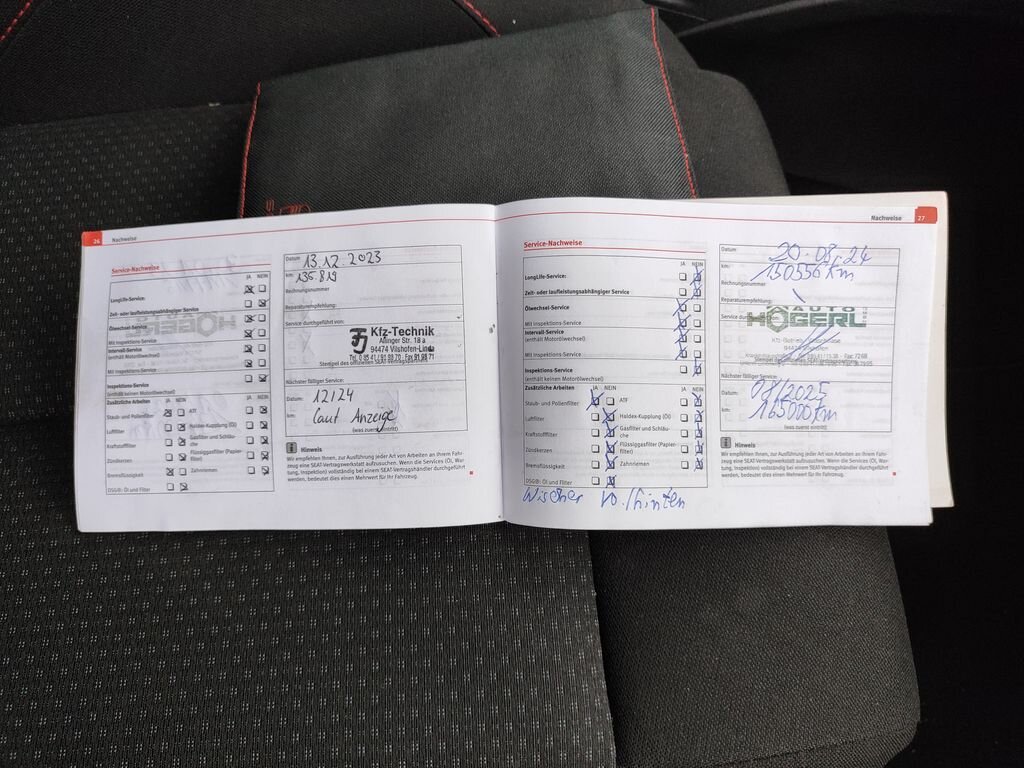 26 Nachweise
Service-Nachweise
JA NEIN
LongLife-Service:
Zeit- oder laufleistungsabhängiger Service
Ölwechsel-Service:
Mit Inspektions-Service
Intervall-Service
(enthält Motorölwechsel)
Mit Inspektions-Service
Inspektions-Service
(enthält keinen Motorölwechsel)
Zusätzliche Arbeiten JA NEIN JA NEIN
Staub- und Pollenfilter ATF
Luftfilter Haldex-Kupplung (Öl)
Kraftstofffilter Gasfilter und Schläu-
che
Zündkerzen Flüssiggasfilter (Papier-
filter)
Bremsflüssigkeit Zahnriemen
DSG®: Öl und Filter
Datum 13.12.2023
km: 136.819
Rechnungsnummer
Reparaturempfehlung:
Service durchgeführt von:
Kfz-Technik
Allinger Str. 18 a
94474 Vilshofen-Linda
Stempel des offiziellen SEAT-Vertragspartners
Nächster fälliger Service:
Datum: 12/24
km: laut Anzeige
(was zuerst eintritt)
Hinweis
Wir empfehlen Ihnen, zur Ausführung jeder Art von Arbeiten an Ihrem Fahr-
zeug eine SEAT-Vertragswerkstatt aufzusuchen. Wenn die Services (Öl, War-
tung, Inspektion) vollständig bei einem SEAT-Vertragshändler durchgeführt
werden, bedeutet dies einen Mehrwert für Ihr Fahrzeug.
Nachweise 27
Service-Nachweise
JA NEIN
LongLife-Service:
Zeit- oder laufleistungsabhängiger Service
Ölwechsel-Service:
Mit Inspektions-Service
Intervall-Service
(enthält Motorölwechsel)
Mit Inspektions-Service
Inspektions-Service
(enthält keinen Motorölwechsel)
Zusätzliche Arbeiten JA NEIN JA NEIN
Staub- und Pollenfilter ATF
Luftfilter Haldex-Kupplung (Öl)
Kraftstofffilter Gasfilter und Schläu-
che
Zündkerzen Flüssiggasfilter (Papier-
filter)
Bremsflüssigkeit Zahnriemen
DSG®: Öl und Filter
Wischer vo./hinten
Datum: 20.08.24
km: 150556 km
Rechnungsnummer
Reparaturempfehlung:
AUTO
HÖGERL
Nächster fälliger Service:
Datum: 08/2025
km: 165000 km
(was zuerst eintritt)
Hinweis
Wir empfehlen Ihnen, zur Ausführung jeder Art von Arbeiten an Ihrem Fahr-
zeug eine SEAT-Vertragswerkstatt aufzusuchen. Wenn die Services (Öl, War-
tung, Inspektion) vollständig bei einem SEAT-Vertragshändler durchgeführt
werden, bedeutet dies einen Mehrwert für Ihr Fahrzeug.